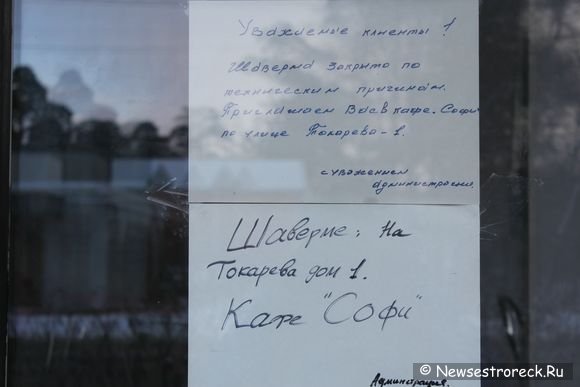 Уважаемые клиенты!
Шаверма закрыто по
техническим причинам.
Приглашаем Вас в кафе. Софи
по улице Токарева-1.
с уважением
администрация.
Шаверме: На
Токарева дом 1.
Кафе "Софи"
Администрация.
© Newsestroreck.Ru